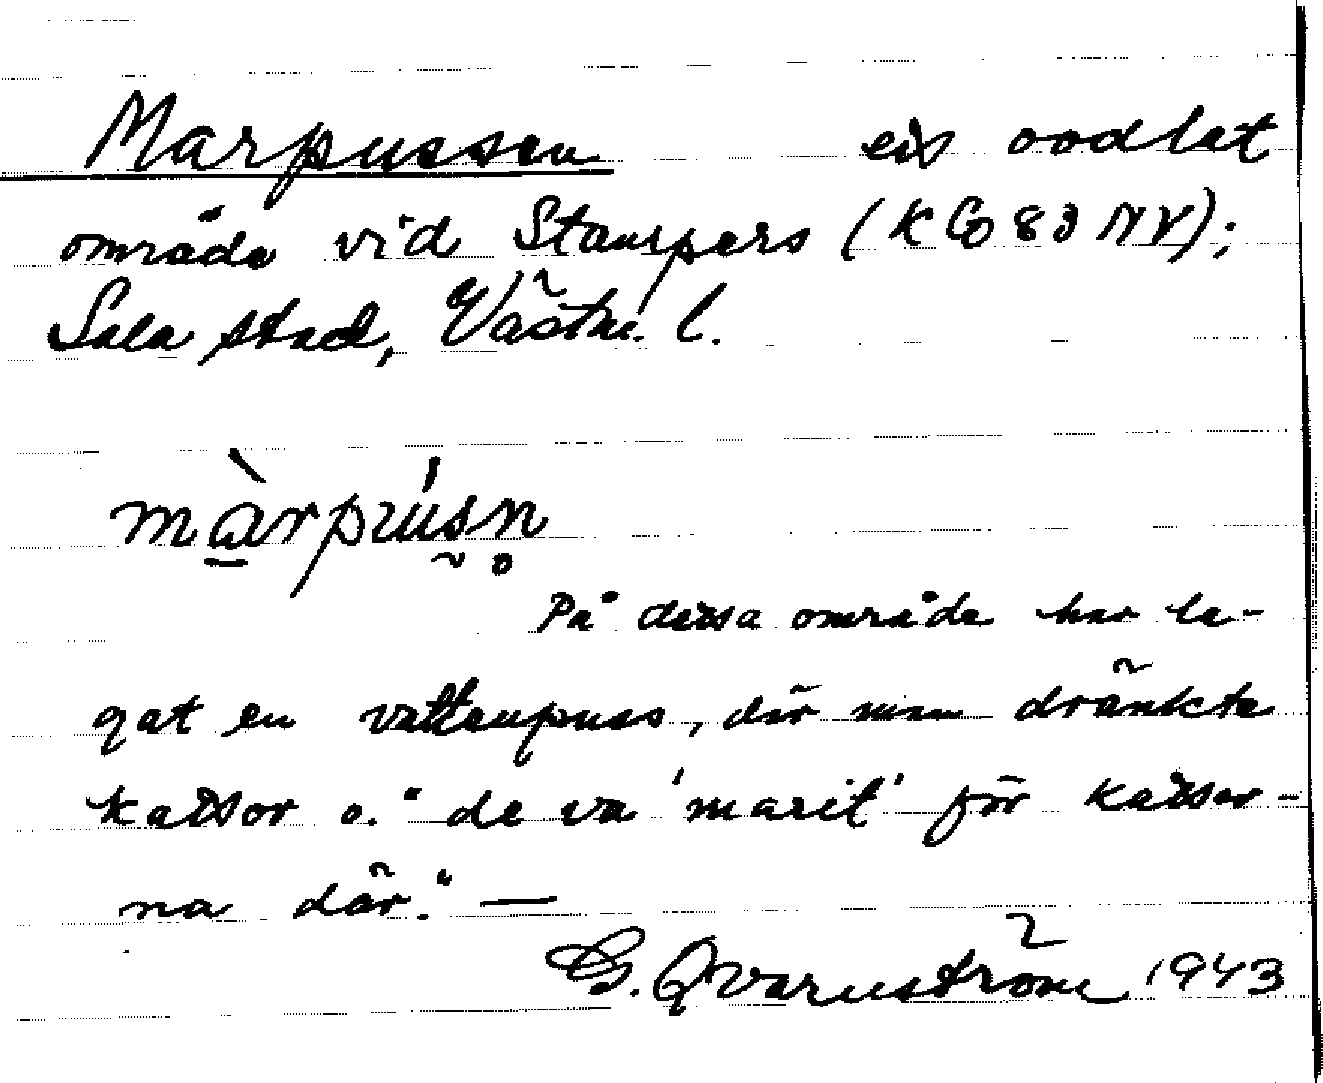 Marpussen ett oodlat
område vid Stampers (KG 83 NV);
Sala stad, Västm. l.
màrpúsn
På dessa område har le-
gat en vattenpuss, där man dränkte
kattor o. "de va 'marit' för kattor-
na där." —
G. Qvarnström 1943